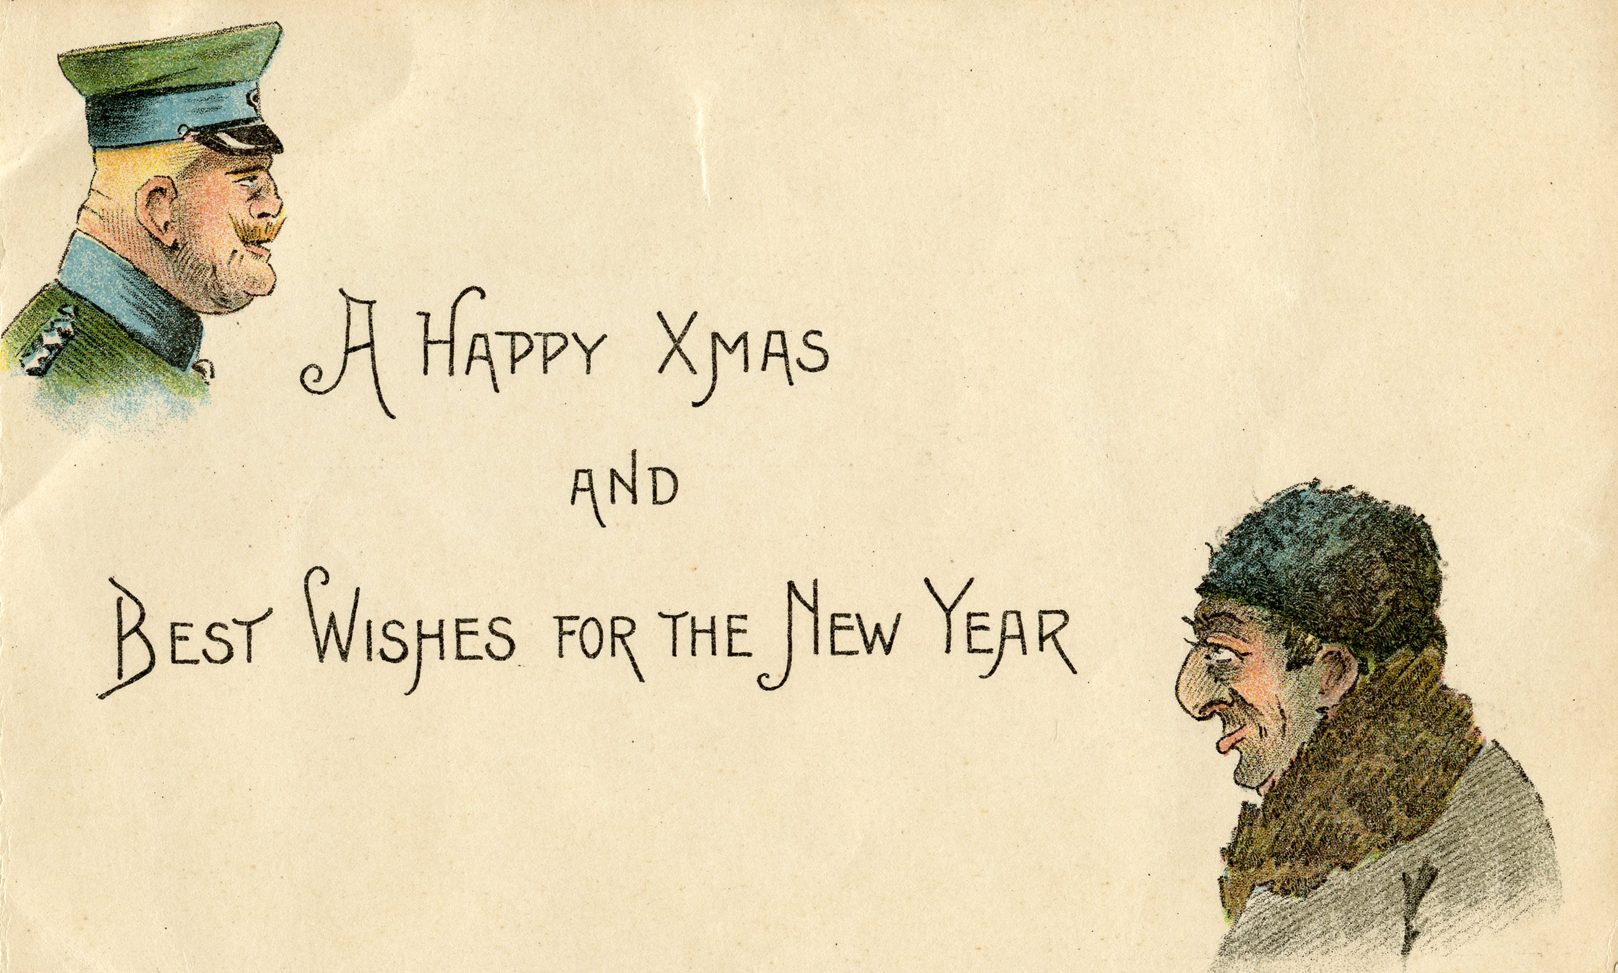 A HAPPY XMAS
AND
BEST WISHES FOR THE NEW YEAR